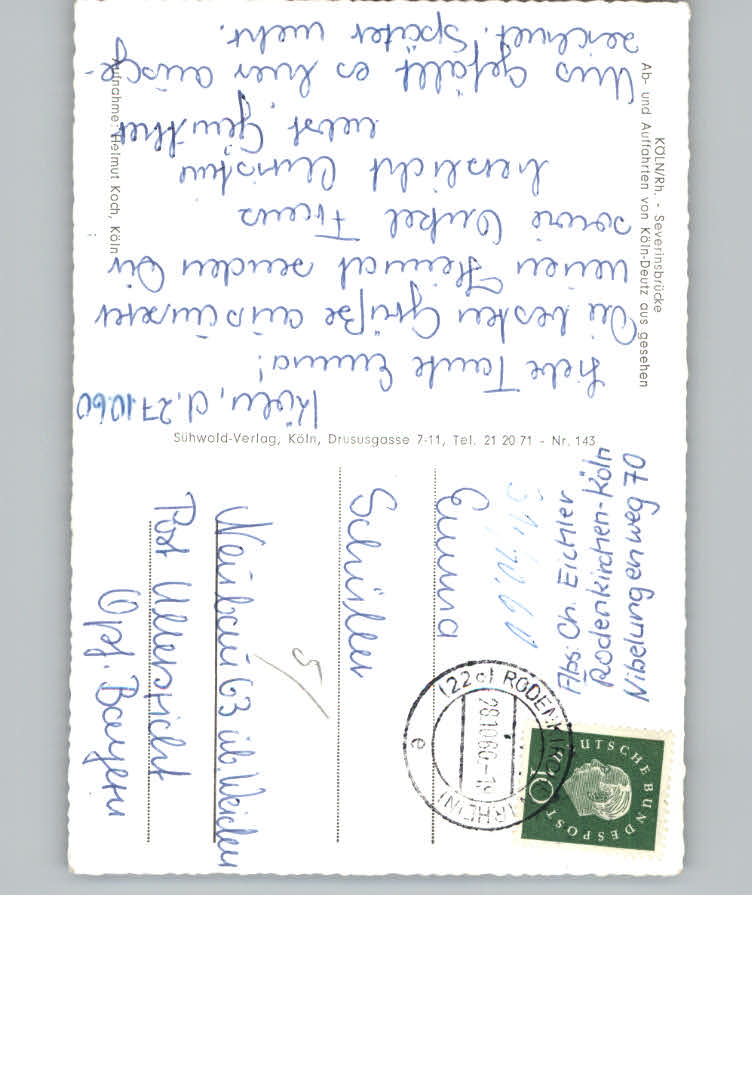 KÖLN/Rh. - Severinsbrücke
Ab- und Auffahrten von Köln-Deutz aus gesehen
Köln, d. 27.10.60
Liebe Tante Emma!
Die besten Grüße aus unserer
neuen Heimat senden Dir
sowie Onkel Franz
herzlichst Christine
nebst Günther
Uns gefällt es hier ausge-
zeichnet. Später mehr.
Aufnahme: Helmut Koch, Köln
Sühwold-Verlag, Köln, Drususgasse 7-11, Tel. 21 20 71 - Nr. 143
Abs: Ch. Eichler
Rodenkirchen-Köln
Nibelungenweg 70
31.10.60
Emma
Schüller
Neubau 63 üb. Weiden
Post Ullersricht
Opf. Bayern
5
(22c) RODENKIRCHEN (RHEIN)
28.10.60-19
e
DEUTSCHE BUNDESPOST
10